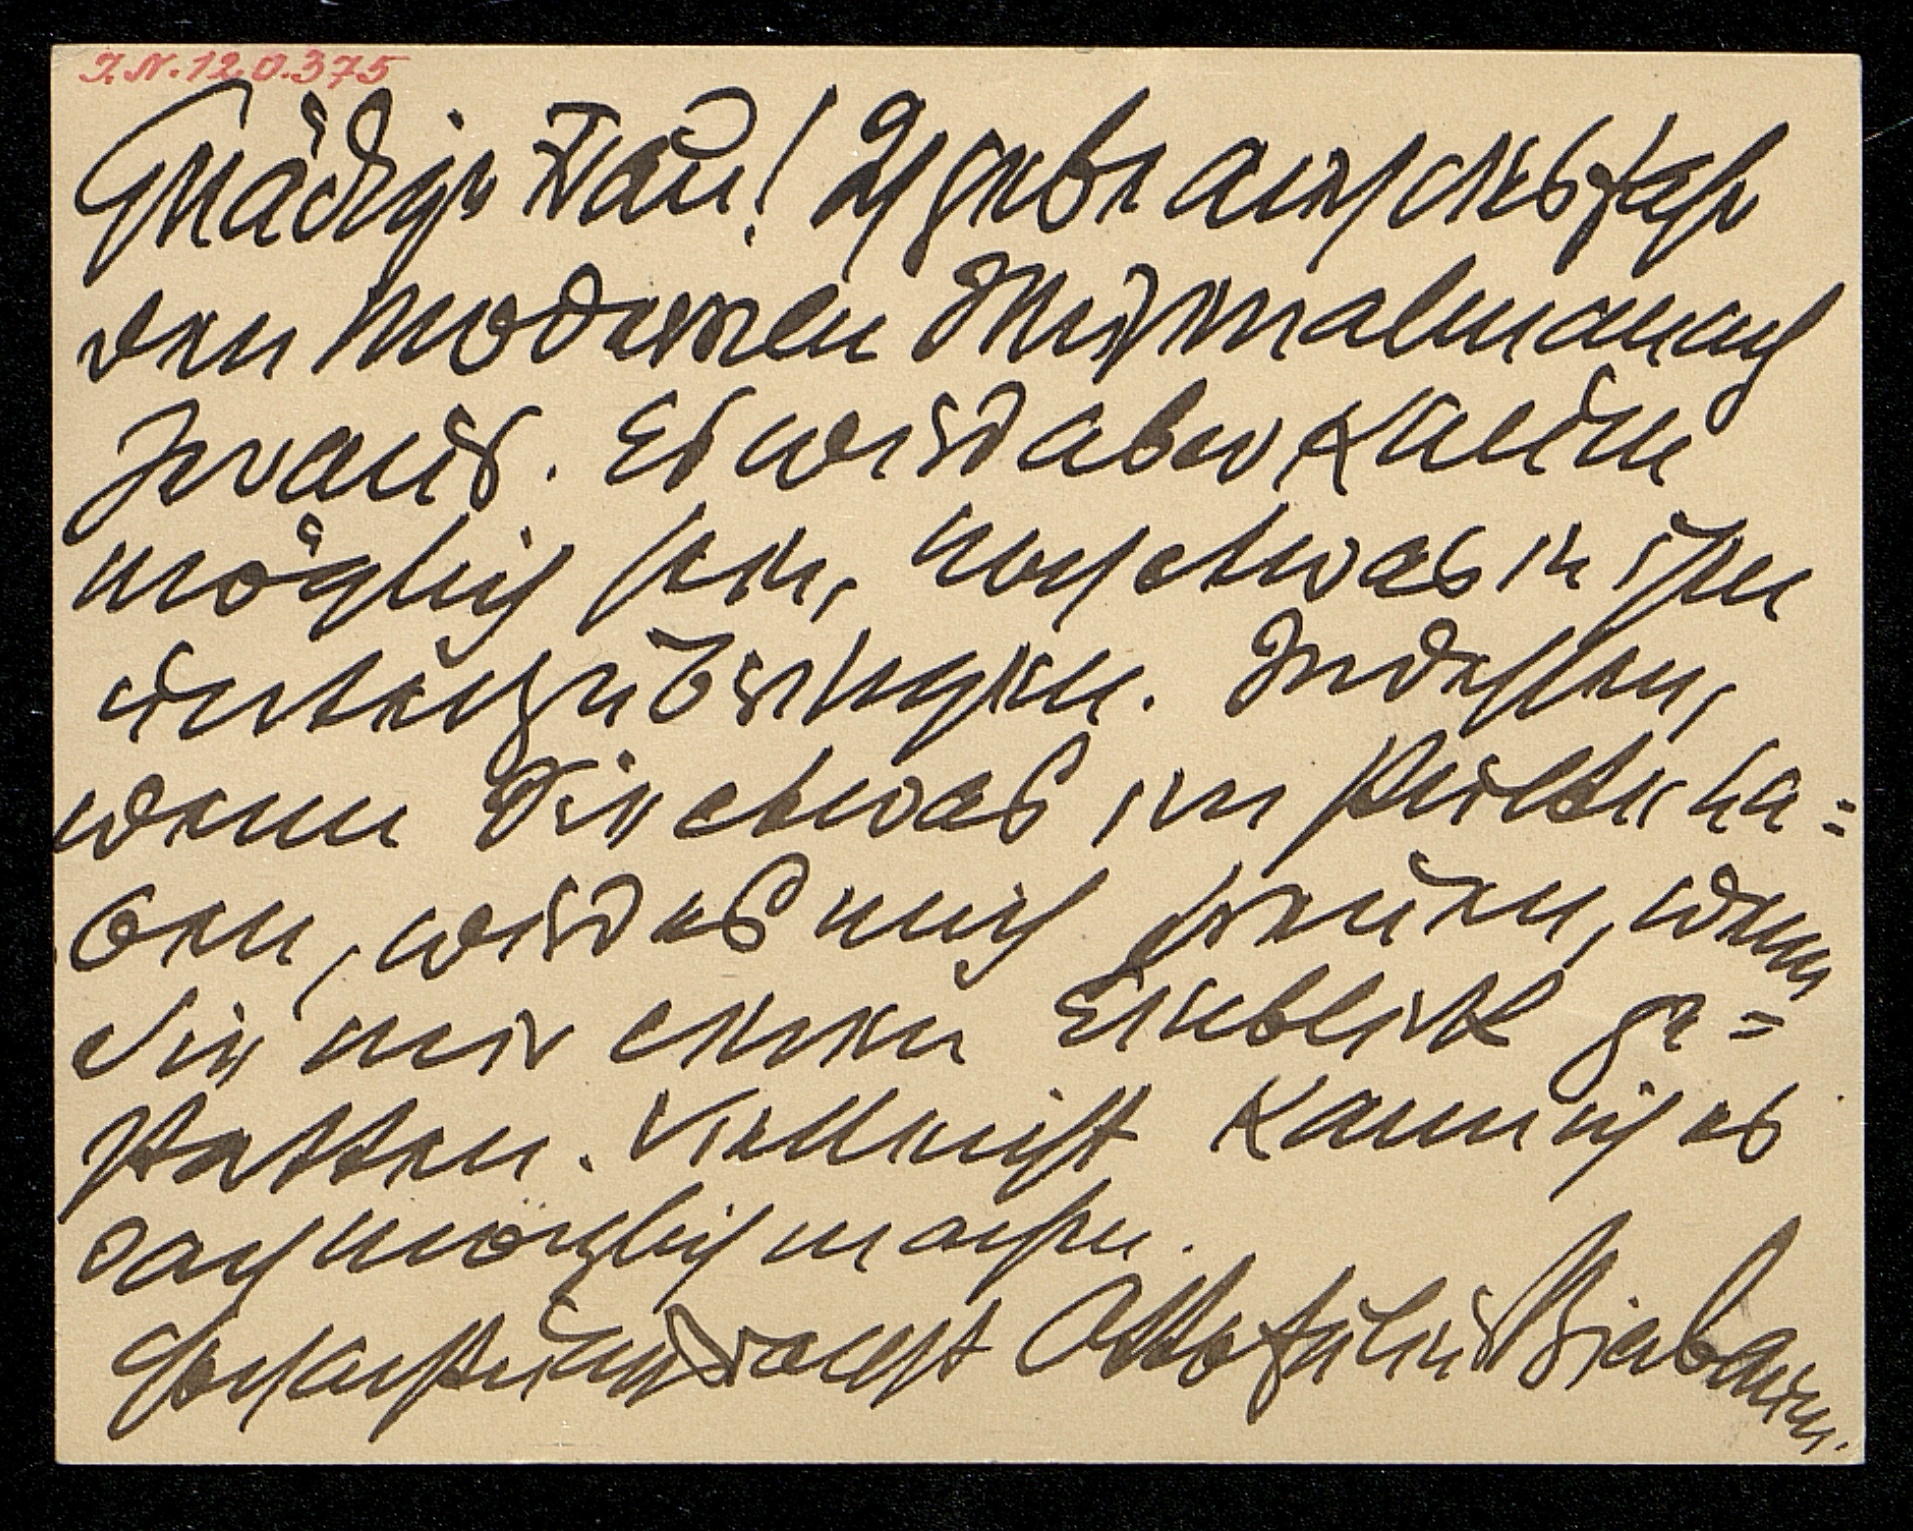 I.N. 120.375
Gnädige Frau! Ich gebe auch dies Jahr
den Modernen Musenalmanach
heraus. Es wird aber kaum
möglich sein, noch etwas in ihm
unterzubringen. Indessen,
wenn Sie etwas im Pulte ha=
ben, wird es mich freuen, wenn
Sie mir einen Einblick ge=
statten. Vielleicht kann ich es
doch möglich machen.
Hochachtungsvollst Otto Julius Bierbaum.